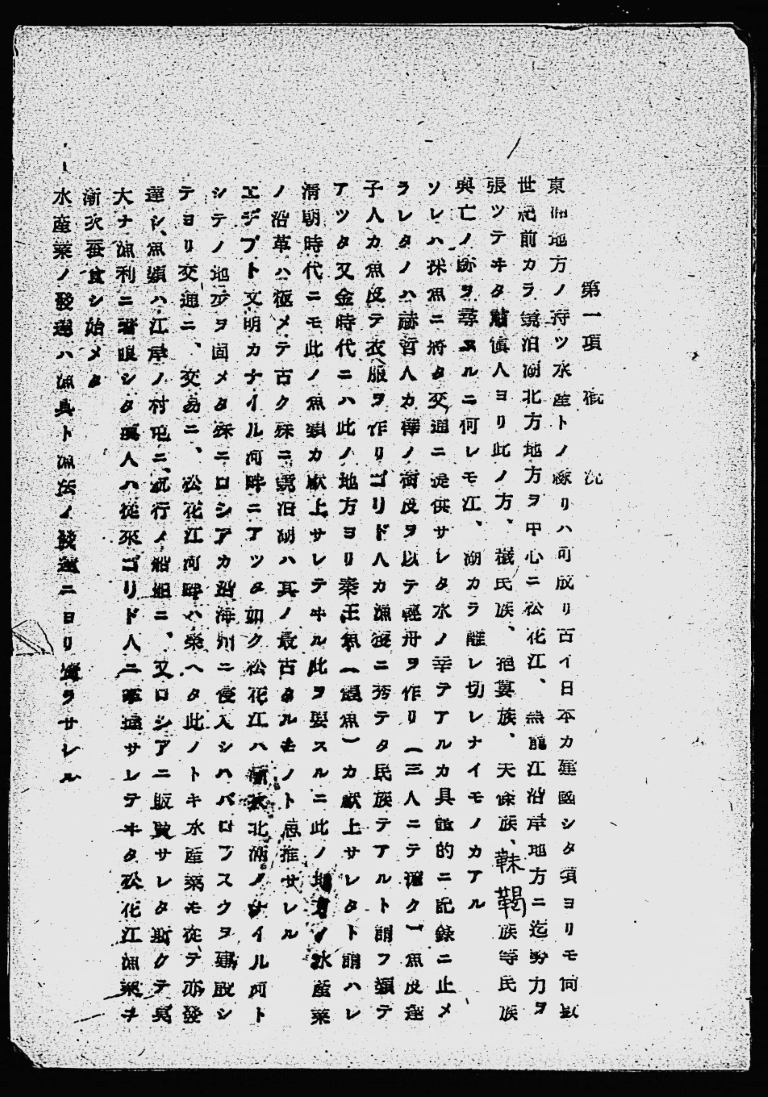 第一項 概況
東北地方ノ持ツ水産トノ縁リハ可成リ古イ日本カ建國シタ頃ヨリモ何數
世紀前カラ鏡泊湖北方地方ヲ中心ニ松花江、黒龍江沿岸地方ニ迄勢力ヲ
張ツテヰタ肅愼人ヨリ此ノ方、濊民族、挹婁族、天孫族、靺鞨族等民族
興亡ノ跡ヲ尋ヌルニ何レモ江、湖カラ離レ切レナイモノカアル
ソレハ採魚ニ將タ交通ニ提供サレタ水ノ幸テアルカ具體的ニ記錄ニ止メ
ラレタノハ赫哲人カ樺ノ樹皮ヲ以テ輕舟ヲ作リ（三人ニテ漕ク）魚皮達
子人カ魚皮テ衣服ヲ作リゴリド人カ漁獲ニ秀テタ民族テアルト謂フ類テ
アツタ又金時代ニハ此ノ地方ヨリ秦王魚（鱘魚）カ獻上サレタト謂ハレ
淸朝時代ニモ此ノ魚類カ獻上サレテヰル此ヲ要スルニ此ノ地方ノ水産業
ノ沿革ハ極メテ古ク殊ニ鏡泊湖ハ其ノ最古タルモノト思推サレル
エジプト文明カナイル河畔ニアツタ如ク松花江ハ北滿ノナイル河ト
シテノ地步ヲ固メタ殊ニロシアカ沿海州ニ侵入シハバロフスクヲ建設シ
テヨリ交通ニ、交易ニ、松花江河畔ハ榮ヘタ此ノトキ水産業モ從テ亦發
達シ、魚類ハ江岸ノ村屯ニ、航行ノ船舶ニ、又ロシアニ販賣サレタ斯クテ莫
大ナ漁利ニ着眼シタ漢人ハ從來ゴリド人ニ專通サレテヰタ松花江漁業ヲ
漸次蚕食シ始メタ
水産業ノ發達ハ漁具ト漁法ノ發達ニヨリ齎ラサレル